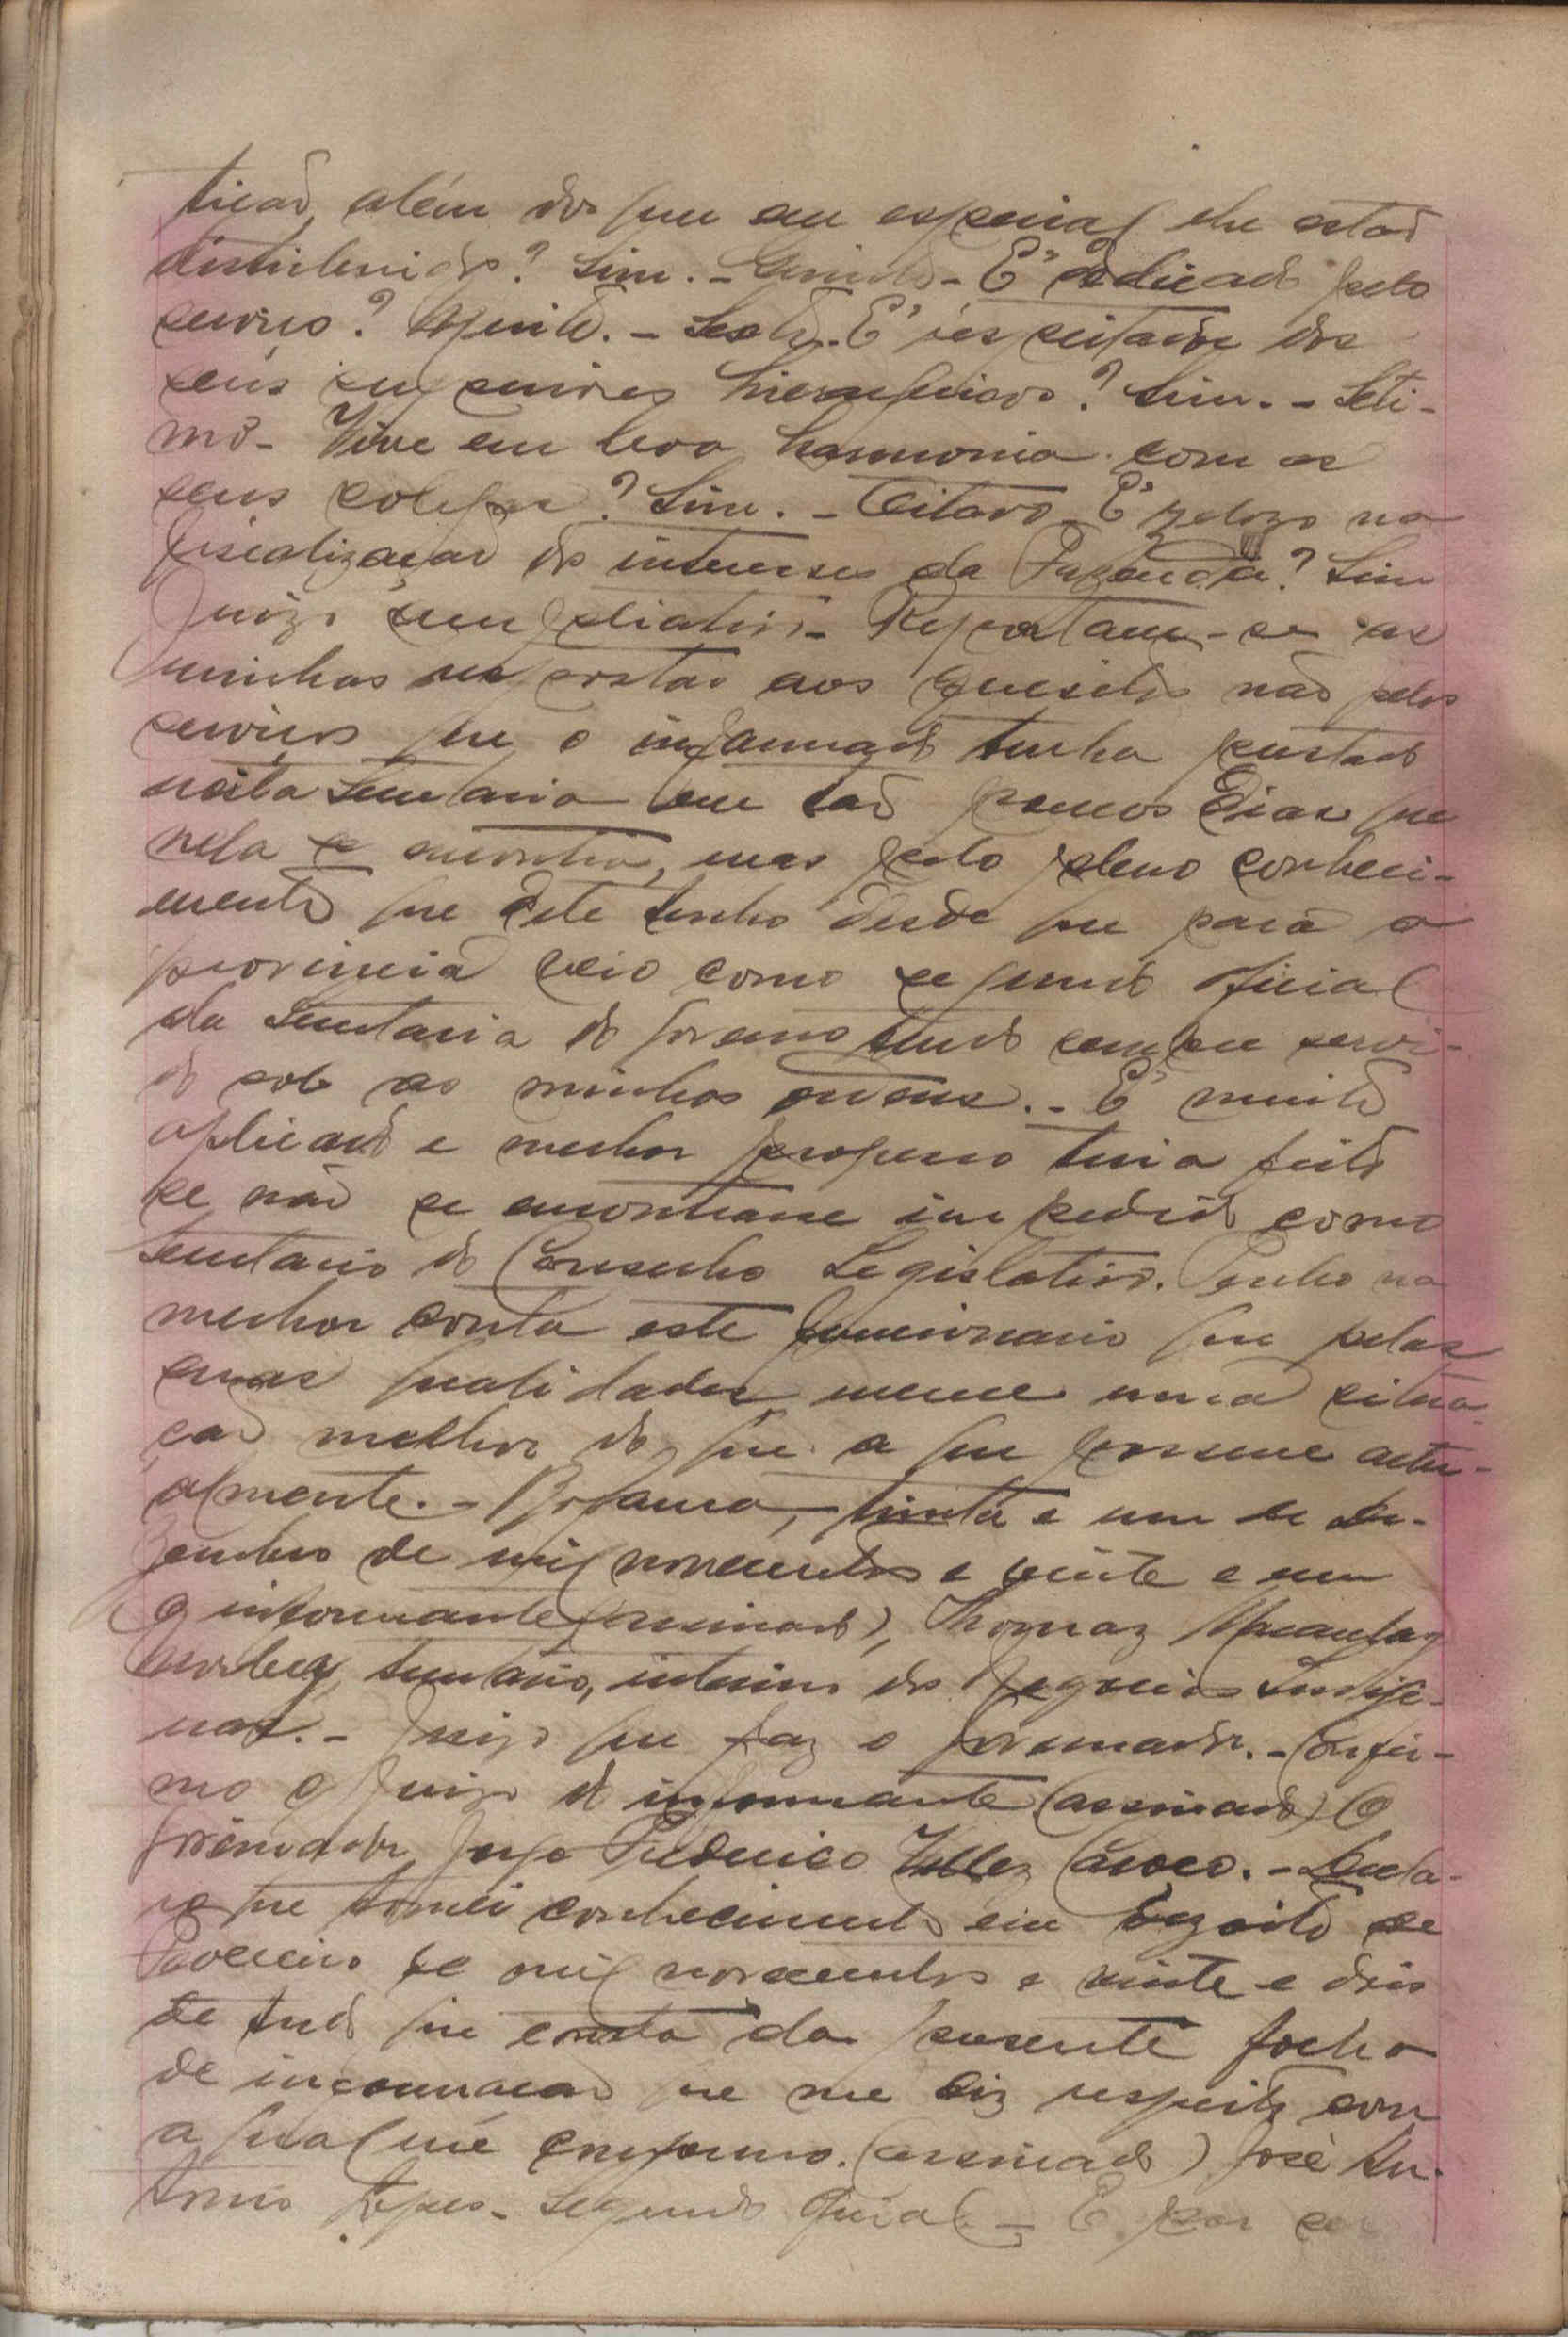 ticas, além dos que em especial lhe estão
distribuidos? Sim. - Quinto - É dedicado pelo
serviço? Muito. - Sexto. É respeitador dos
seus superiores hierarquicos? Sim. - Seti-
mo - Vive em boa harmonia com os
seus colegas? Sim. - Oitavo - É zeloso na
fiscalização dos interesses da Fazenda? Sim
Juizo ampliativo - Reportam-se as
minhas respostas aos quesitos não pelos
serviços que o informado tenha prestado
nesta Secretaria em tão poucos dias que
nela se encontra, mas pelo pleno conheci-
mento que dele tenho desde que para a
provincia veio como segundo oficial
da Secretaria do Governo tendo sempre servi-
do sob as minhas ordens. - É muito
aplicado e melhor progresso teria feito
se não se encontrasse impedido como
Secretario do Conselho Legislativo. Tenho na
melhor conta este funcionario que pelas
suas qualidades merece uma situa-
ção melhor do que a que possue actu-
almente. - Bolama, trinta e um de De-
zembro de mil novecentos e vinte e um
O informante (assinado), Thomaz
secretario, interino dos Negocios Indige-
nas. - Juizo que faz o Governador. - Confir-
mo o Juizo do informante (assinado) O
Governador Jorge Frederico Vellez Caroço. - Decla-
ro que tomei conhecimento em dezoito de
Fevereiro de mil novecentos e vinte e dois
de tudo que consta da presente folha
de informação que me diz respeito com
a qual me conformo. (assinado) José An-
tonio Lopes - Segundo Oficial - E por ser